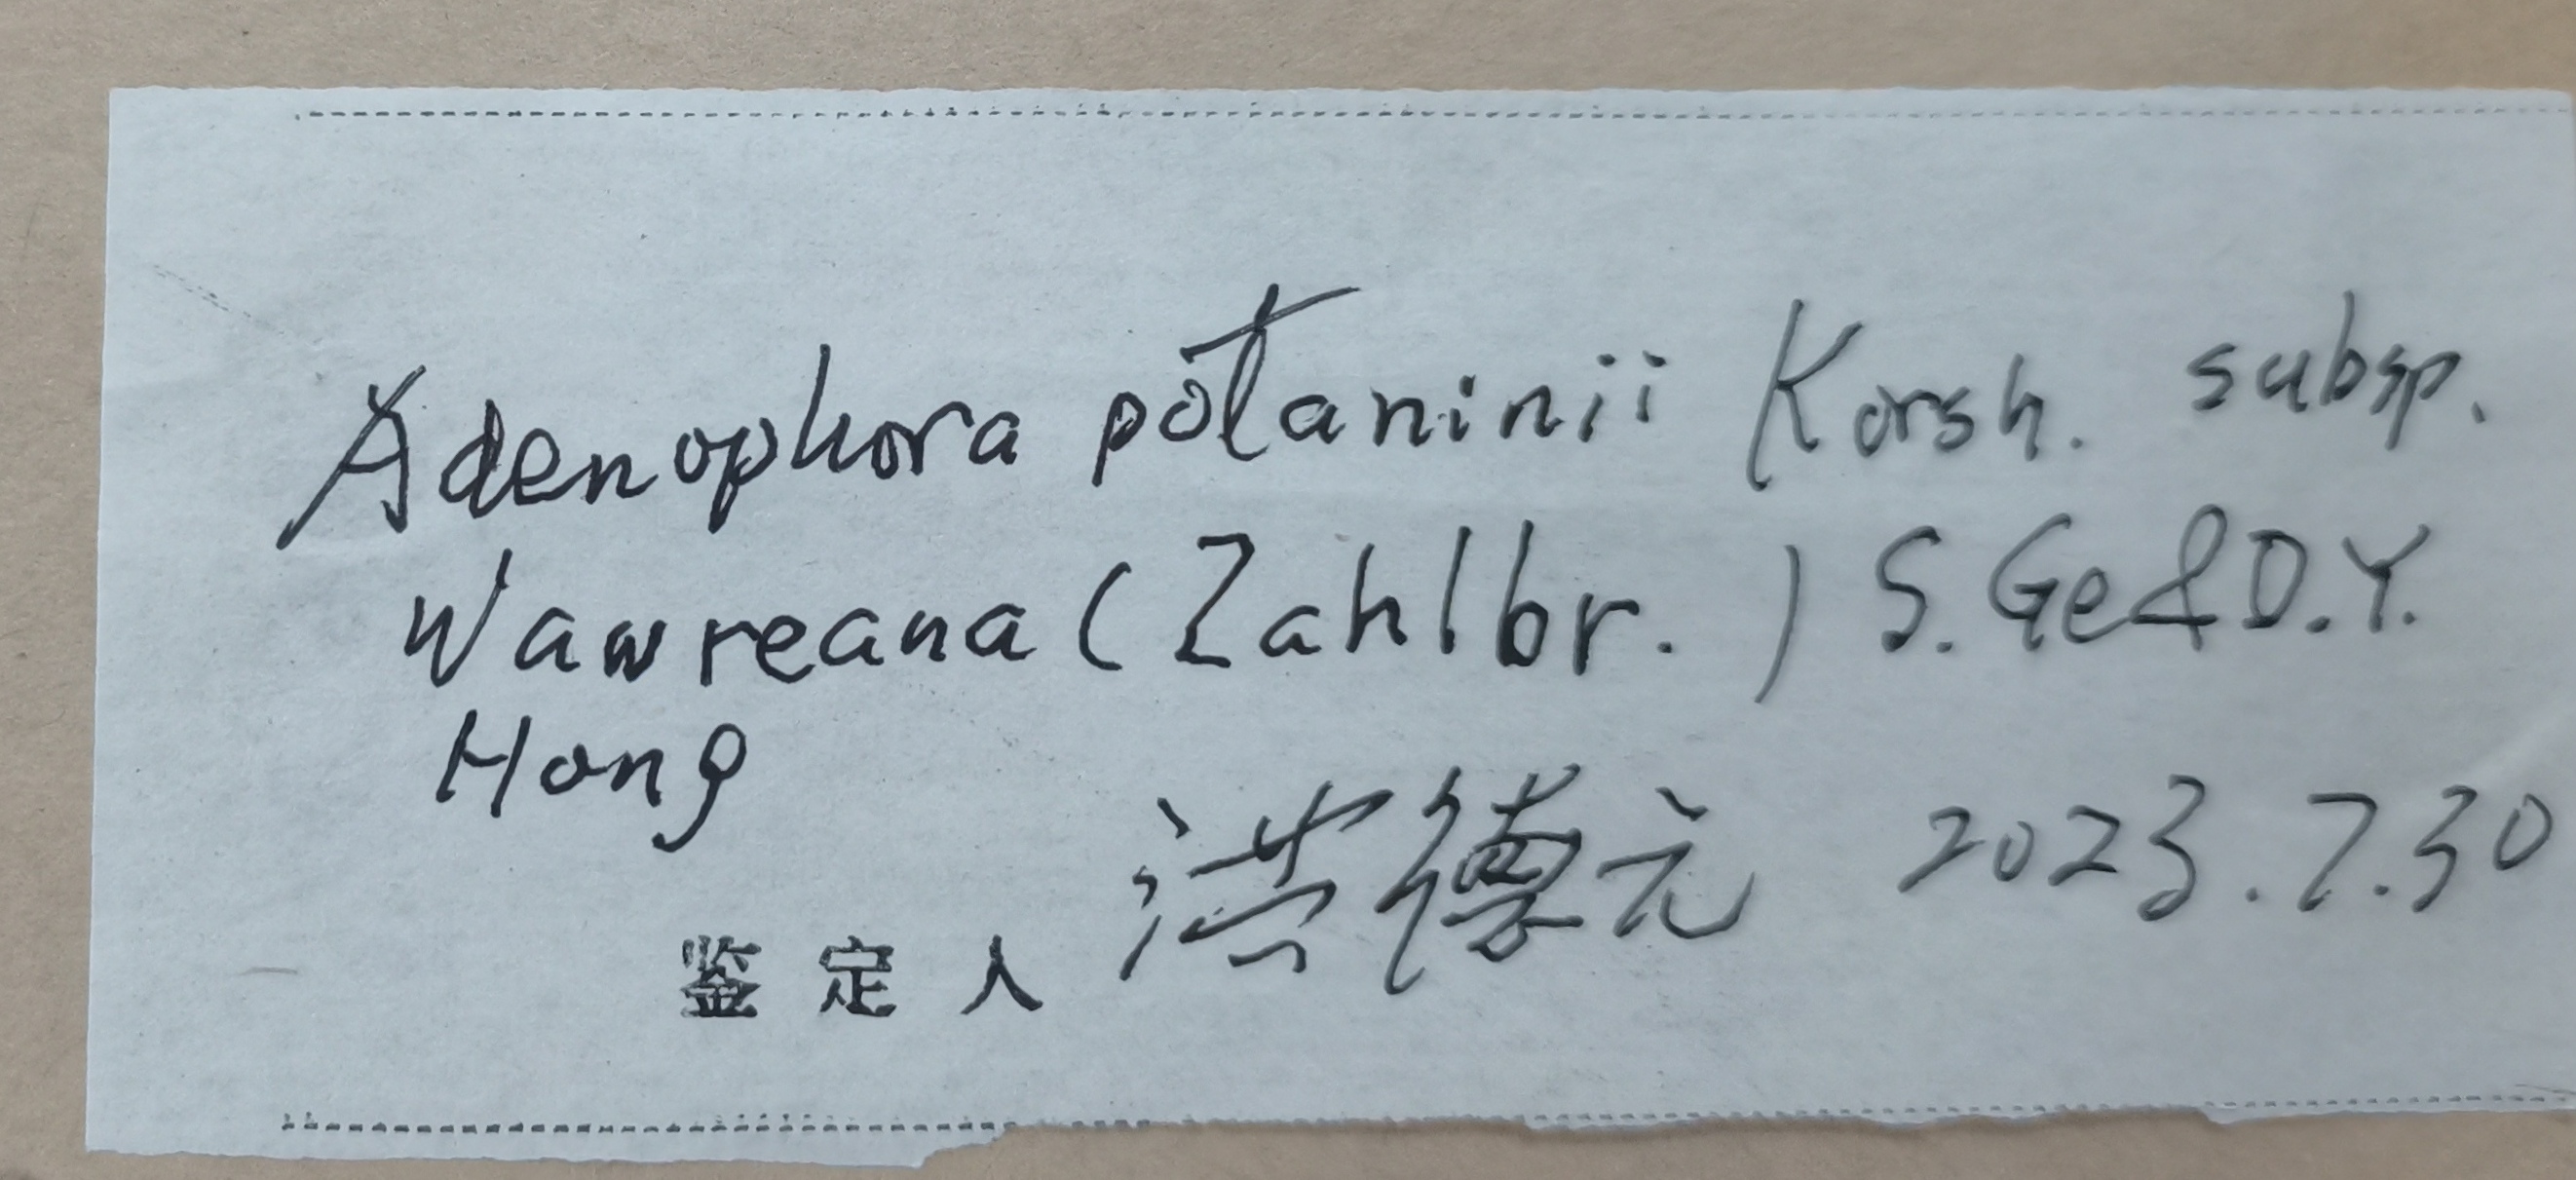 Adenophora potaninii Korsh. subsp.
Wawreana (Zahlbr.) S. Ge & D.Y.
Hong
鉴定人 洪德元 2023.7.30